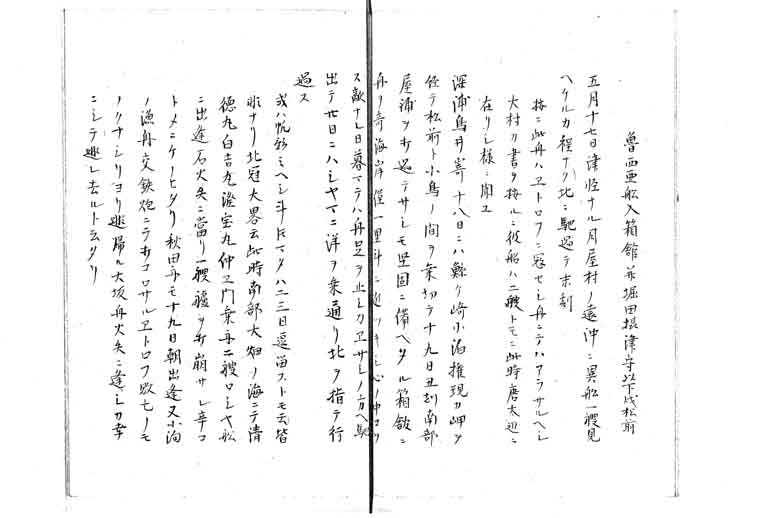 魯西亜船入箱館并堀田摂津守以下戍松前
五月十七日津軽ナル月屋村ノ遠沖ニ異船一艘見
ヘケルカ程ナク北ニ馳過テ未刻
按ニ此舟ハヱトロフニ寇セシ舟ニテハアラサルヘシ
大村カ書ヲ按ルニ彼船ハ二艘トモニ此時唐太辺ニ
在リシ様ニ聞ユ
深浦鳥井崎十八日ニハ鯵ケ崎小泊権現カ岬ヲ
経テ松前ト小島ノ間ヲ乗切テ十九日丑刻南部
屋浦ヲ打過テサシモ堅固ニ備ヘタル箱館ニ
舟ヲ寄海岸僅一里斗ニ近ツキ心ノ中
ス敵ナレ日暮マテハ舟足ヲ止シカヱサシノ方ヘ馳
出テ廿日ニハシヤマニ洋ヲ乗通リ北ヲ指テ行
過ス
或ハ帆影ミヘシ斗氏マタハ二三日逗留ストモ云皆
非ナリ北寇大畧云此時南部大畑ノ海ニテ清
徳丸白吉丸澄宝丸仲ヱ門乗舟二艘ロシヤ船
ニ出逢石火矢ニ當リ一艘艫ヲ打崩サレ辛コ
トメニケノヒタリ秋田舟モ十九日朝出逢又小泊
ノ漁舟交鉄炮ニテ打コロサルヱトロフ敗亡ノモ
ノクナシリヨリ逃帰ル大坂舟火矢ニ逢シカ幸
ニシテ逃レ去ルト云タリ